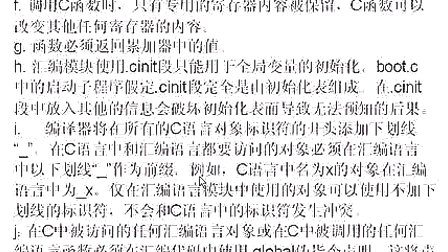 f. 调用C函数时，只有专用的寄存器内容被保留，C函数可以
改变其他任何寄存器的内容。
g. 函数必须返回累加器中的值。
h. 汇编模块使用.cinit段只能用于全局变量的初始化。boot.c
中的启动子程序假定.cinit段完全是由初始化表组成。在.cinit
段中放入其他的信息会破坏初始化表而导致无法预知的后果。
i. 编译器将在所有的C语言对象标识符的开头添加下划线
“_”。在C语言中和汇编语言都要访问的对象必须在汇编语言
中以下划线“_”作为前缀。例如，C语言中名为x的对象在汇编
语言中为_x。仅在汇编语言模块中使用的对象可以使用不加下
划线的标识符，不会和C语言中的标识符发生冲突。
j. 在C中被访问的任何汇编语言对象或在C中被调用的任何汇
编语言函数必须在汇编代码中使用.global伪指令声明。这将声